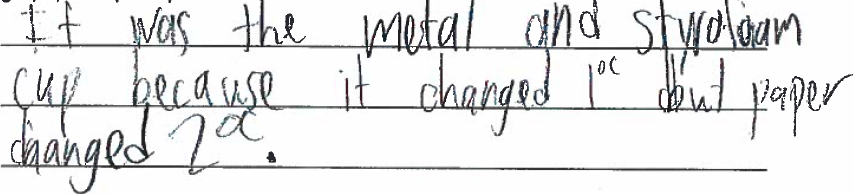 It was the metal and styrofoam
cup because it changed 1°C but paper
changed 2°C.